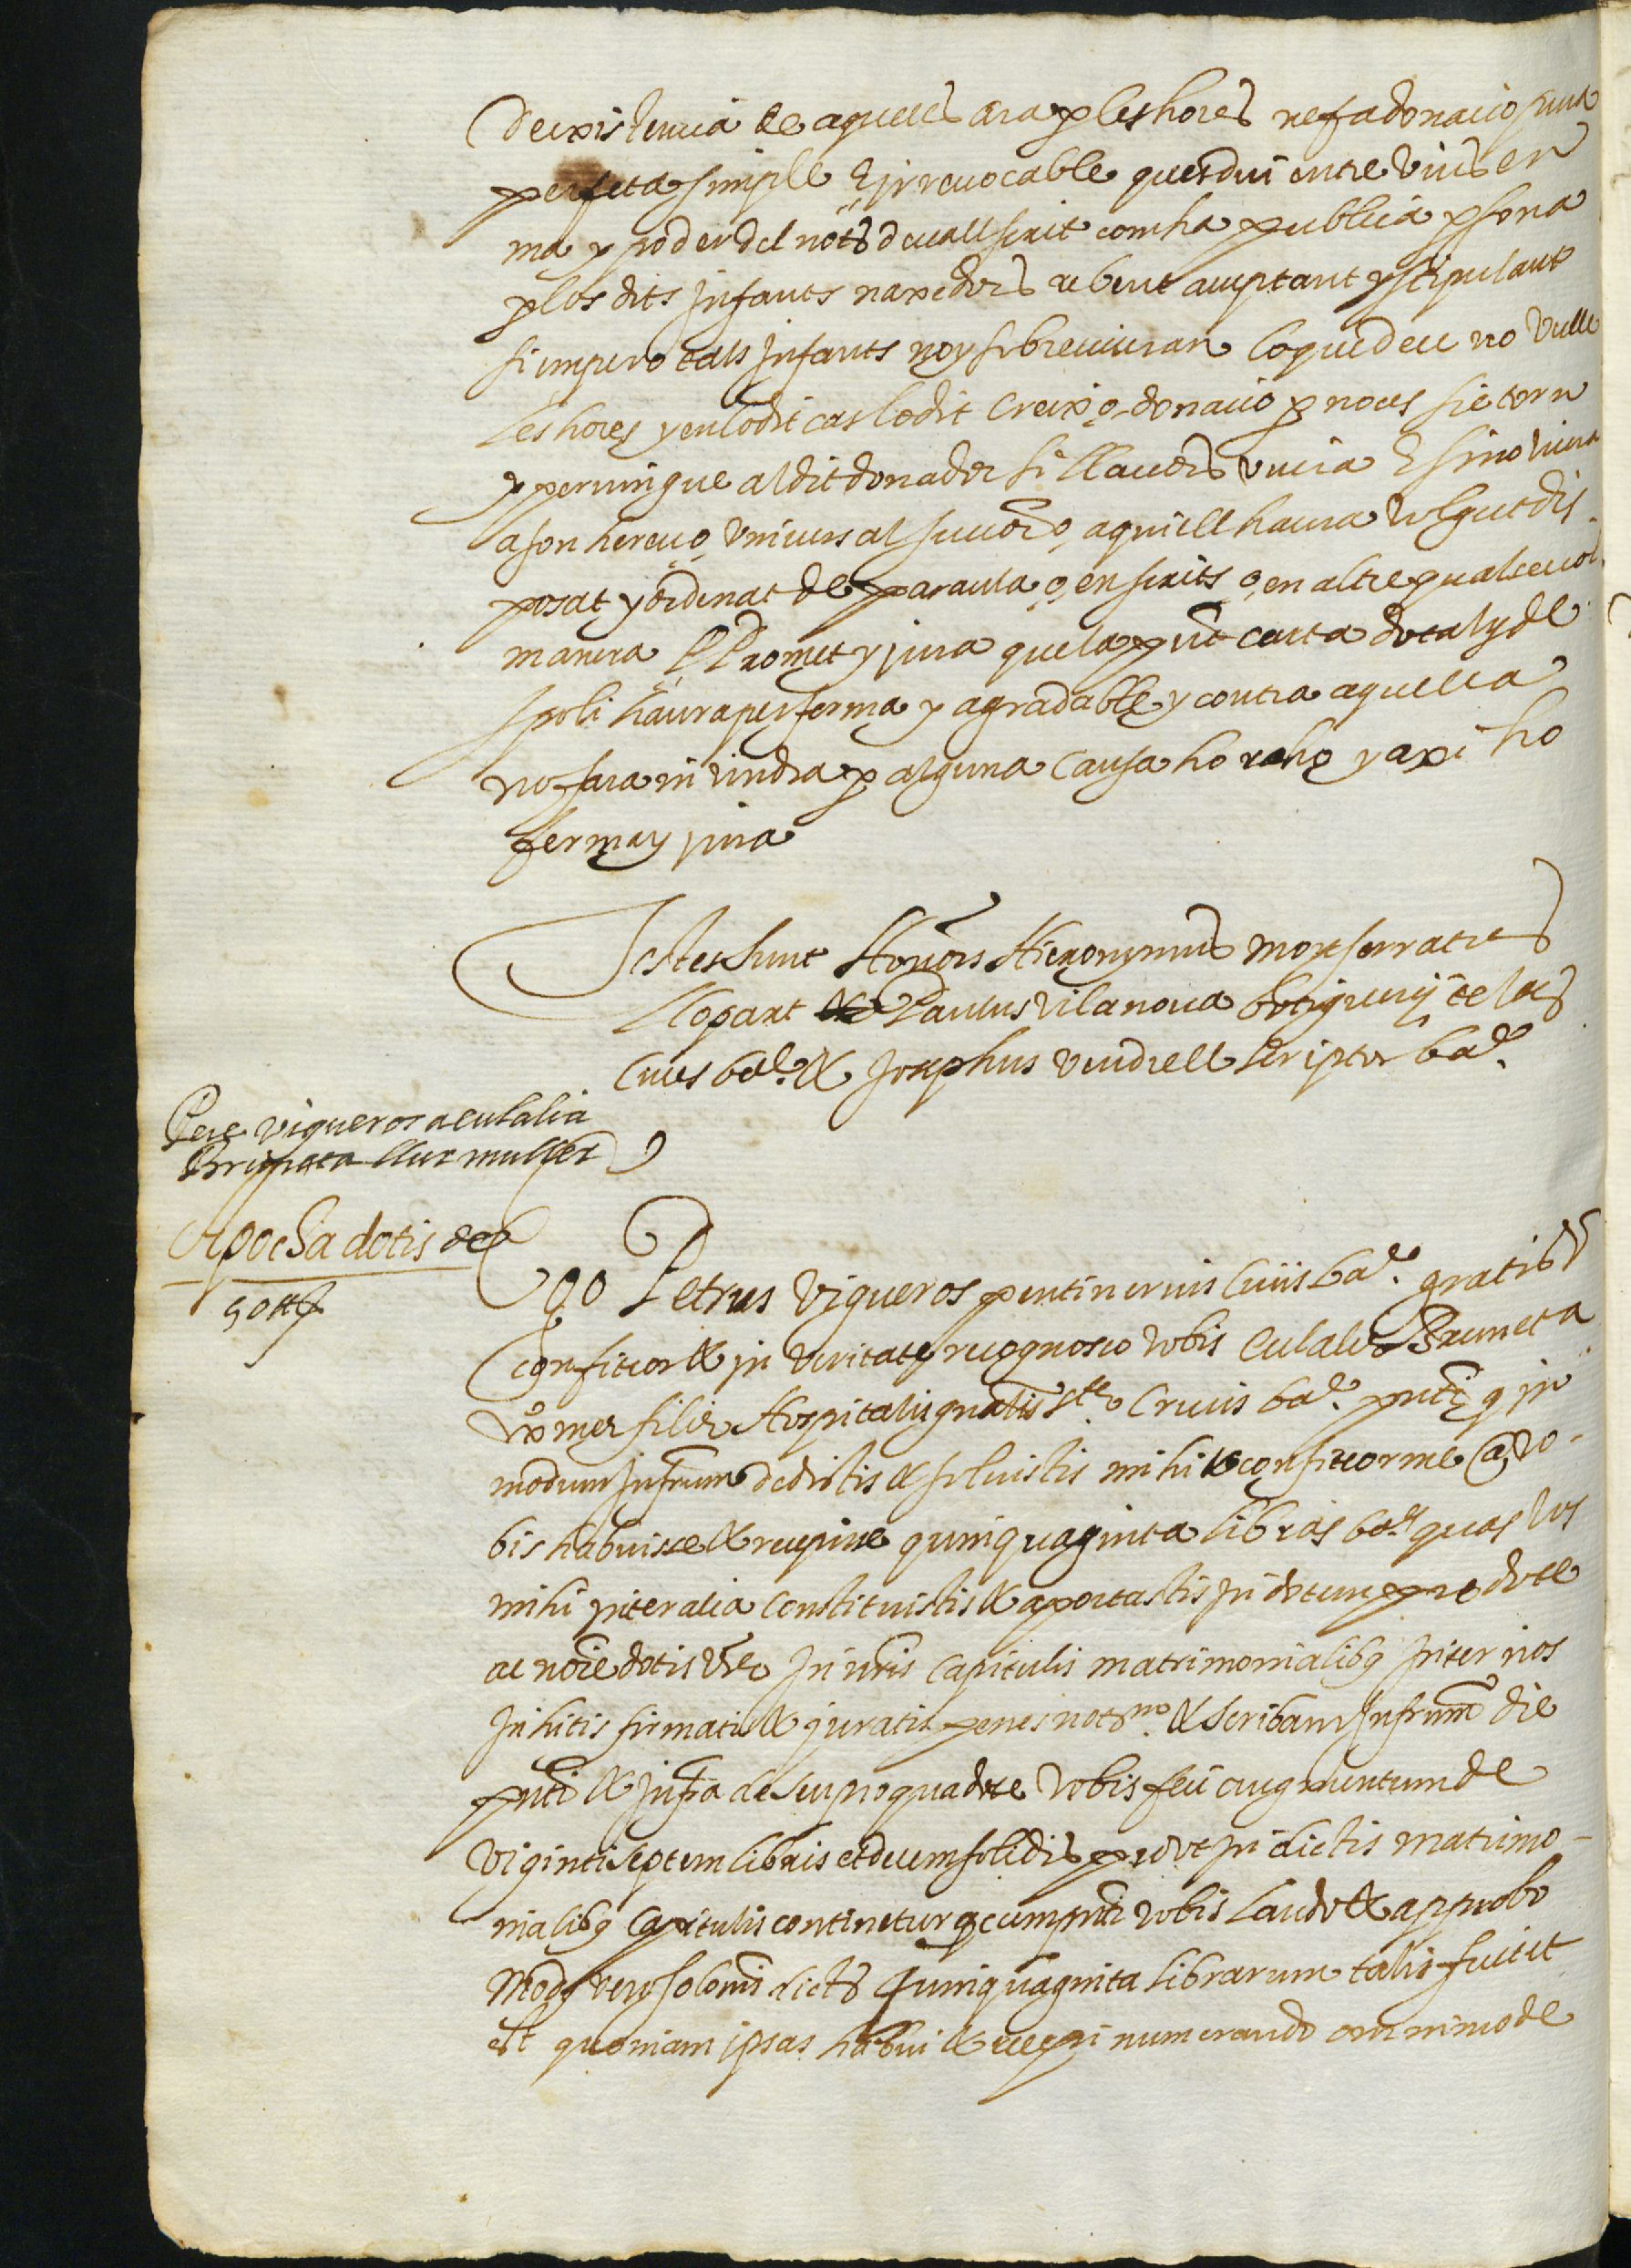 de existencia de aquells ara p les hores ne fa donacio pura
perfeta simple E irrevocable ques diu entre vius en
ma y poder del nots devall scrit com ha publica psona
p los dits infants naxedors rebent acceptant y stipulant
si empero tals infants noy sobreviuran lo que deu no vulle
les hores y en lo dit cas lo dit creix o donacio p noces sie torn
y pervingue al dit donador si llavors viura E si no viura
a son hereu o universal successor o a qui ell haura volgut dis
posat y ordenat de paraula o en scrits o en altre qualsevol
manera E Promet y jura que la pnt carta dotal y de
spoli haura per ferma y agradable y contra aquella
no fara ni vindra p alguna causa ho raho y axi ho
ferma y jura
Testes sunt Honors Hieronymus Montserrat
Llopart & Paulus Vilanova botiguerij telas
cives bar. & Josephus Vendrell scriptor bar.
Pere Vigueros a eulalia
Bruneta llur muller
Apocha dotis de
50 ll
Ego Petrus Vigueros pentinerius civis bar. gratis &
confiteor & in veritate recognosco vobis Eulalie Bruneta
uxori mee filie Hospitalis gnalis Ste Crucis bar. pnti q in
modum infrum dedistis & solvistis mihi & confiteor me a vo-
bis habuisse & recepisse quinquaginta libras bar. quas vos
mihi inter alia constituistis & aportastis in dotem pro dote
ac noie dotis vre in nris capitulis matrimonialibq inter nos
initis firmatis & juratis penes notm & scribam infrum die
pnti & infra de super qua dote vobis feci augmentum de
viginti septem libris et decem solidis prout in dictis matrimo-
nialibq capitulis continetur q cum pnti vobis laudo & approbo
Modq vero solonis dictar quinquaginta librarum talis fuit et
est quoniam ipsas habui & recepi numerando omnimode